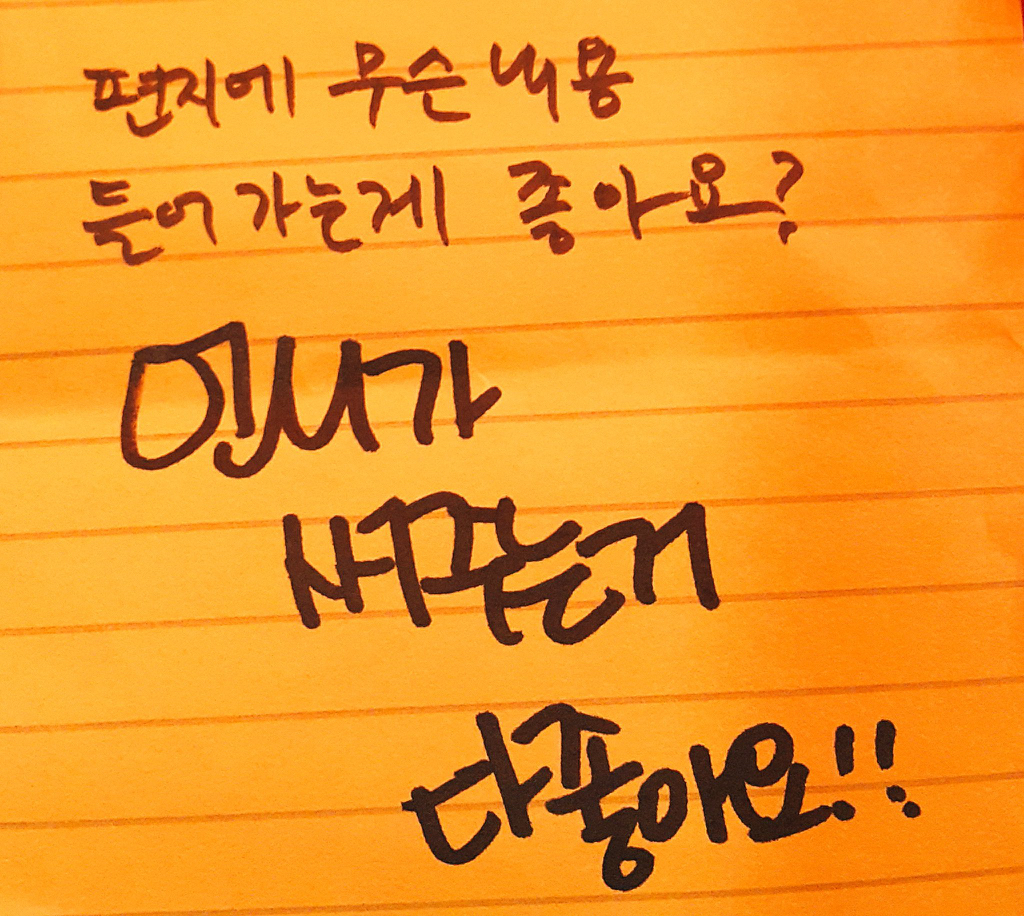 편지에 무슨 내용
들어가는게 좋아요?
민서가
써주는거
다좋아요!!